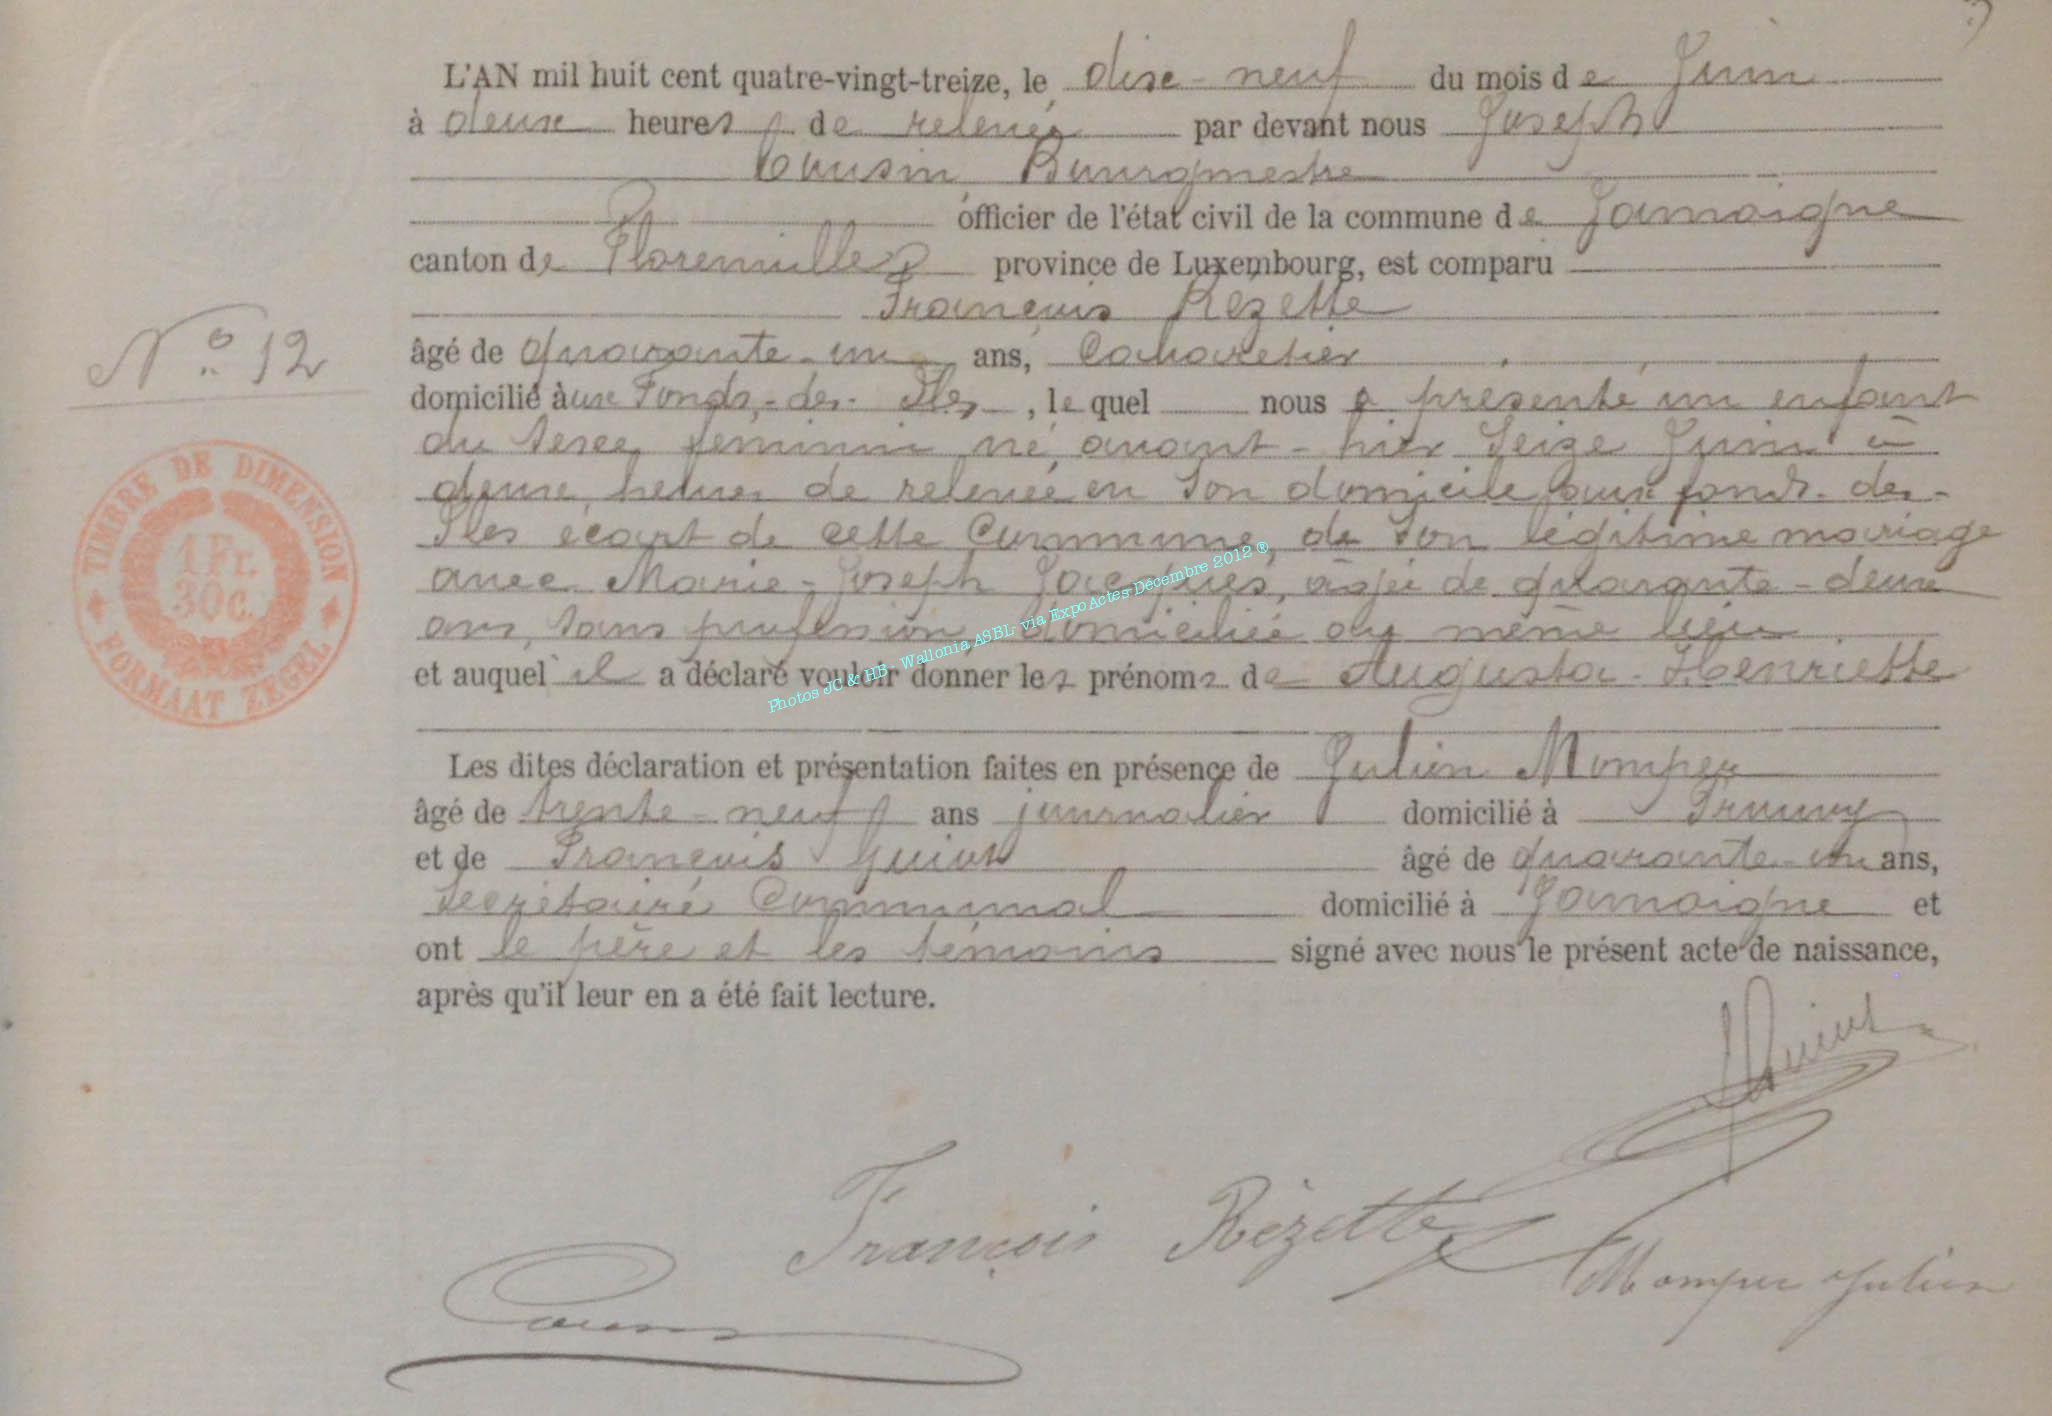 L'AN mil huit cent quatre-vingt-treize, le dixe-neuf du mois de Juin
à deux heures de relevée par devant nous Joseph
Cousin Bourgmestre
officier de l'état civil de la commune de Jamoigne
canton de Florenville province de Luxembourg, est comparu
François Rézette
N° 12
âgé de quarante-un ans, Cabaretier
domicilié àux Fonds-des-Iles, le quel nous a présenté un enfant
du sexe féminin né avant-hier Seize Juin à
deux heures de relevée en son domicile aux fonds-des-
Iles écart de cette Commune, de son légitime mariage
avec Marie-Joseph Jacques, âgée de quarante-deux
ans, sans profession domiciliée au même lieu
et auquel il a déclaré vouloir donner les prénoms de Augusta-Henriette
Les dites déclaration et présentation faites en présence de Julien Momper
âgé de trente-neuf ans journalier domicilié à Prouvy
et de François Guiot âgé de quarante-un ans,
Secrétaire Communal domicilié à Jamoigne et
ont le père et les témoins signé avec nous le présent acte de naissance,
après qu'il leur en a été fait lecture.
TIMBRE DE DIMENSION
1 Fr.
30 c.
FORMAAT ZEGEL
Photos JC & HB - Wallonia ASBL- via ExpoActes-Décembre 2012 ®
Guiot
François Rézette
Momper Julien